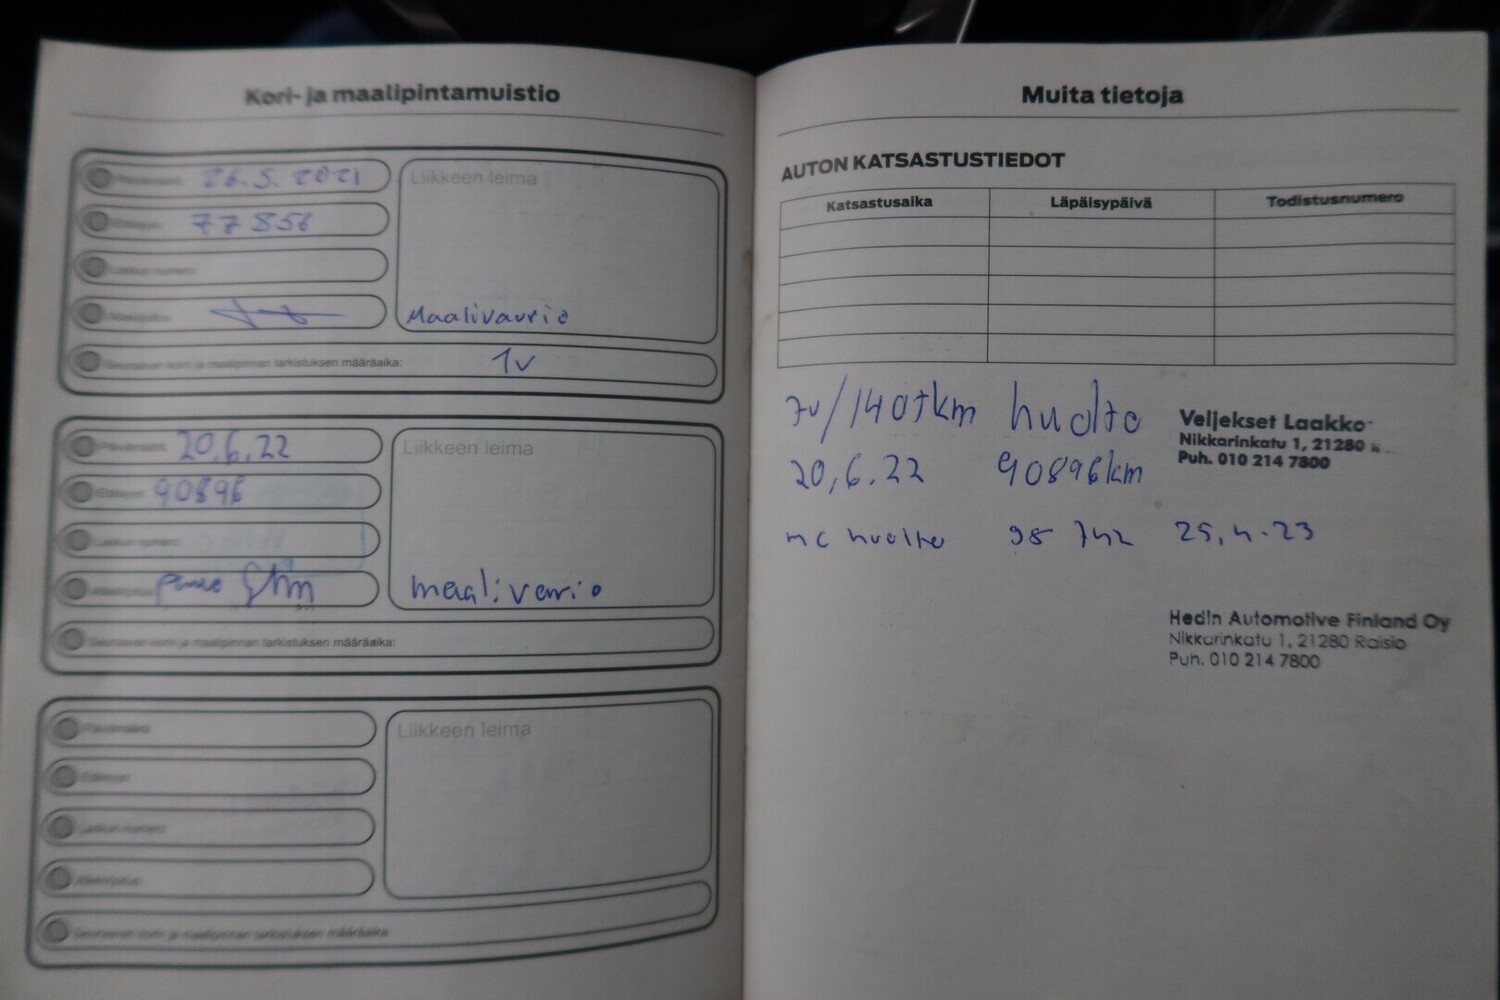 Kori- ja maalipintamuistio
26.5.2021
Liikkeen leima
77856
Laskun numero:
Maalivaurio
Seuraavan korin ja maalipinnan tarkistuksen määräaika: 1v
20,6,22
Liikkeen leima
90896
Laskun numero:
maalivaurio
Seuraavan korin ja maalipinnan tarkistuksen määräaika:
Päivämäärä:
Liikkeen leima
Laskun numero:
Allekirjoitus:
Seuraavan korin ja maalipinnan tarkistuksen määräaika:
Muita tietoja
AUTON KATSASTUSTIEDOT
Katsastusaika Läpäisypäivä Todistusnumero
7v/140tkm huolto
20,6.22 90896km
Veljekset Laakko
Nikkarinkatu 1, 21280
Puh. 010 214 7800
mc huolto 98 742 25.4.23
Hedin Automotive Finland Oy
Nikkarinkatu 1, 21280 Raisio
Puh. 010 214 7800